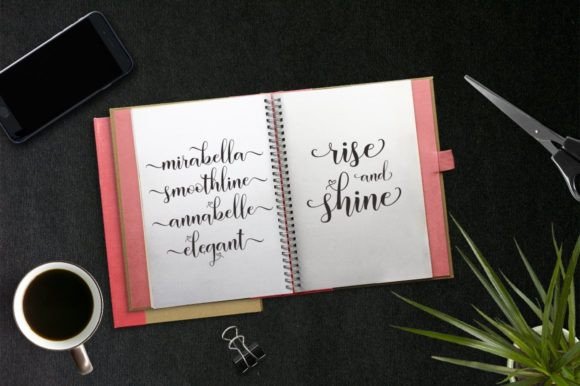 mirabella
smoothline
annabelle
elegant
rise
and
shine